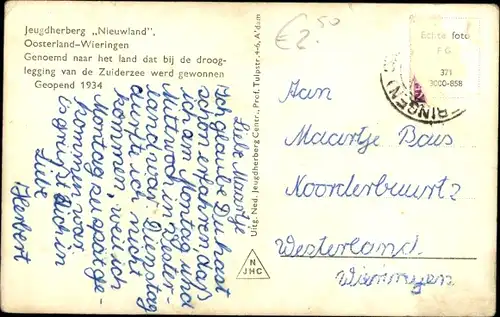 Jeugdherberg „Nieuwland",
Oosterland-Wieringen
Genoemd naar het land dat bij de droog-
legging van de Zuiderzee werd gewonnen
Geopend 1934
Liebe Maartje
Ich glaube Du hast
schon erfahren daß
ich am Montag und
Mittwoch in Oester-
land war. Dienstag
durfte ich nicht
kommen, weil ich
Montag zu spät ge-
kommen war.
Es grüßt Dich in
Liebe
Herbert
Uitg. Ned. Jeugdherberg Centr., Prof. Tulpstr. 4-6, A'dam
N
JHC
€ 2.50
Echte foto
F G
371
3000-858
RINGEN
Aan
Maartje Bais
Noorderbuurt 2
Westerland.
Wieringen